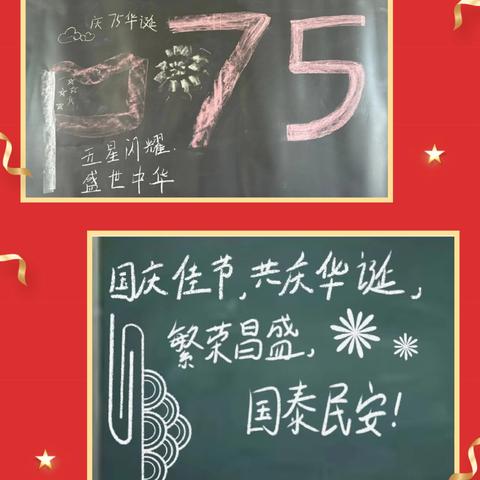 庆75华诞
75
五星闪耀.
盛世中华
国庆佳节,共庆华诞,
繁荣昌盛,
国泰民安!